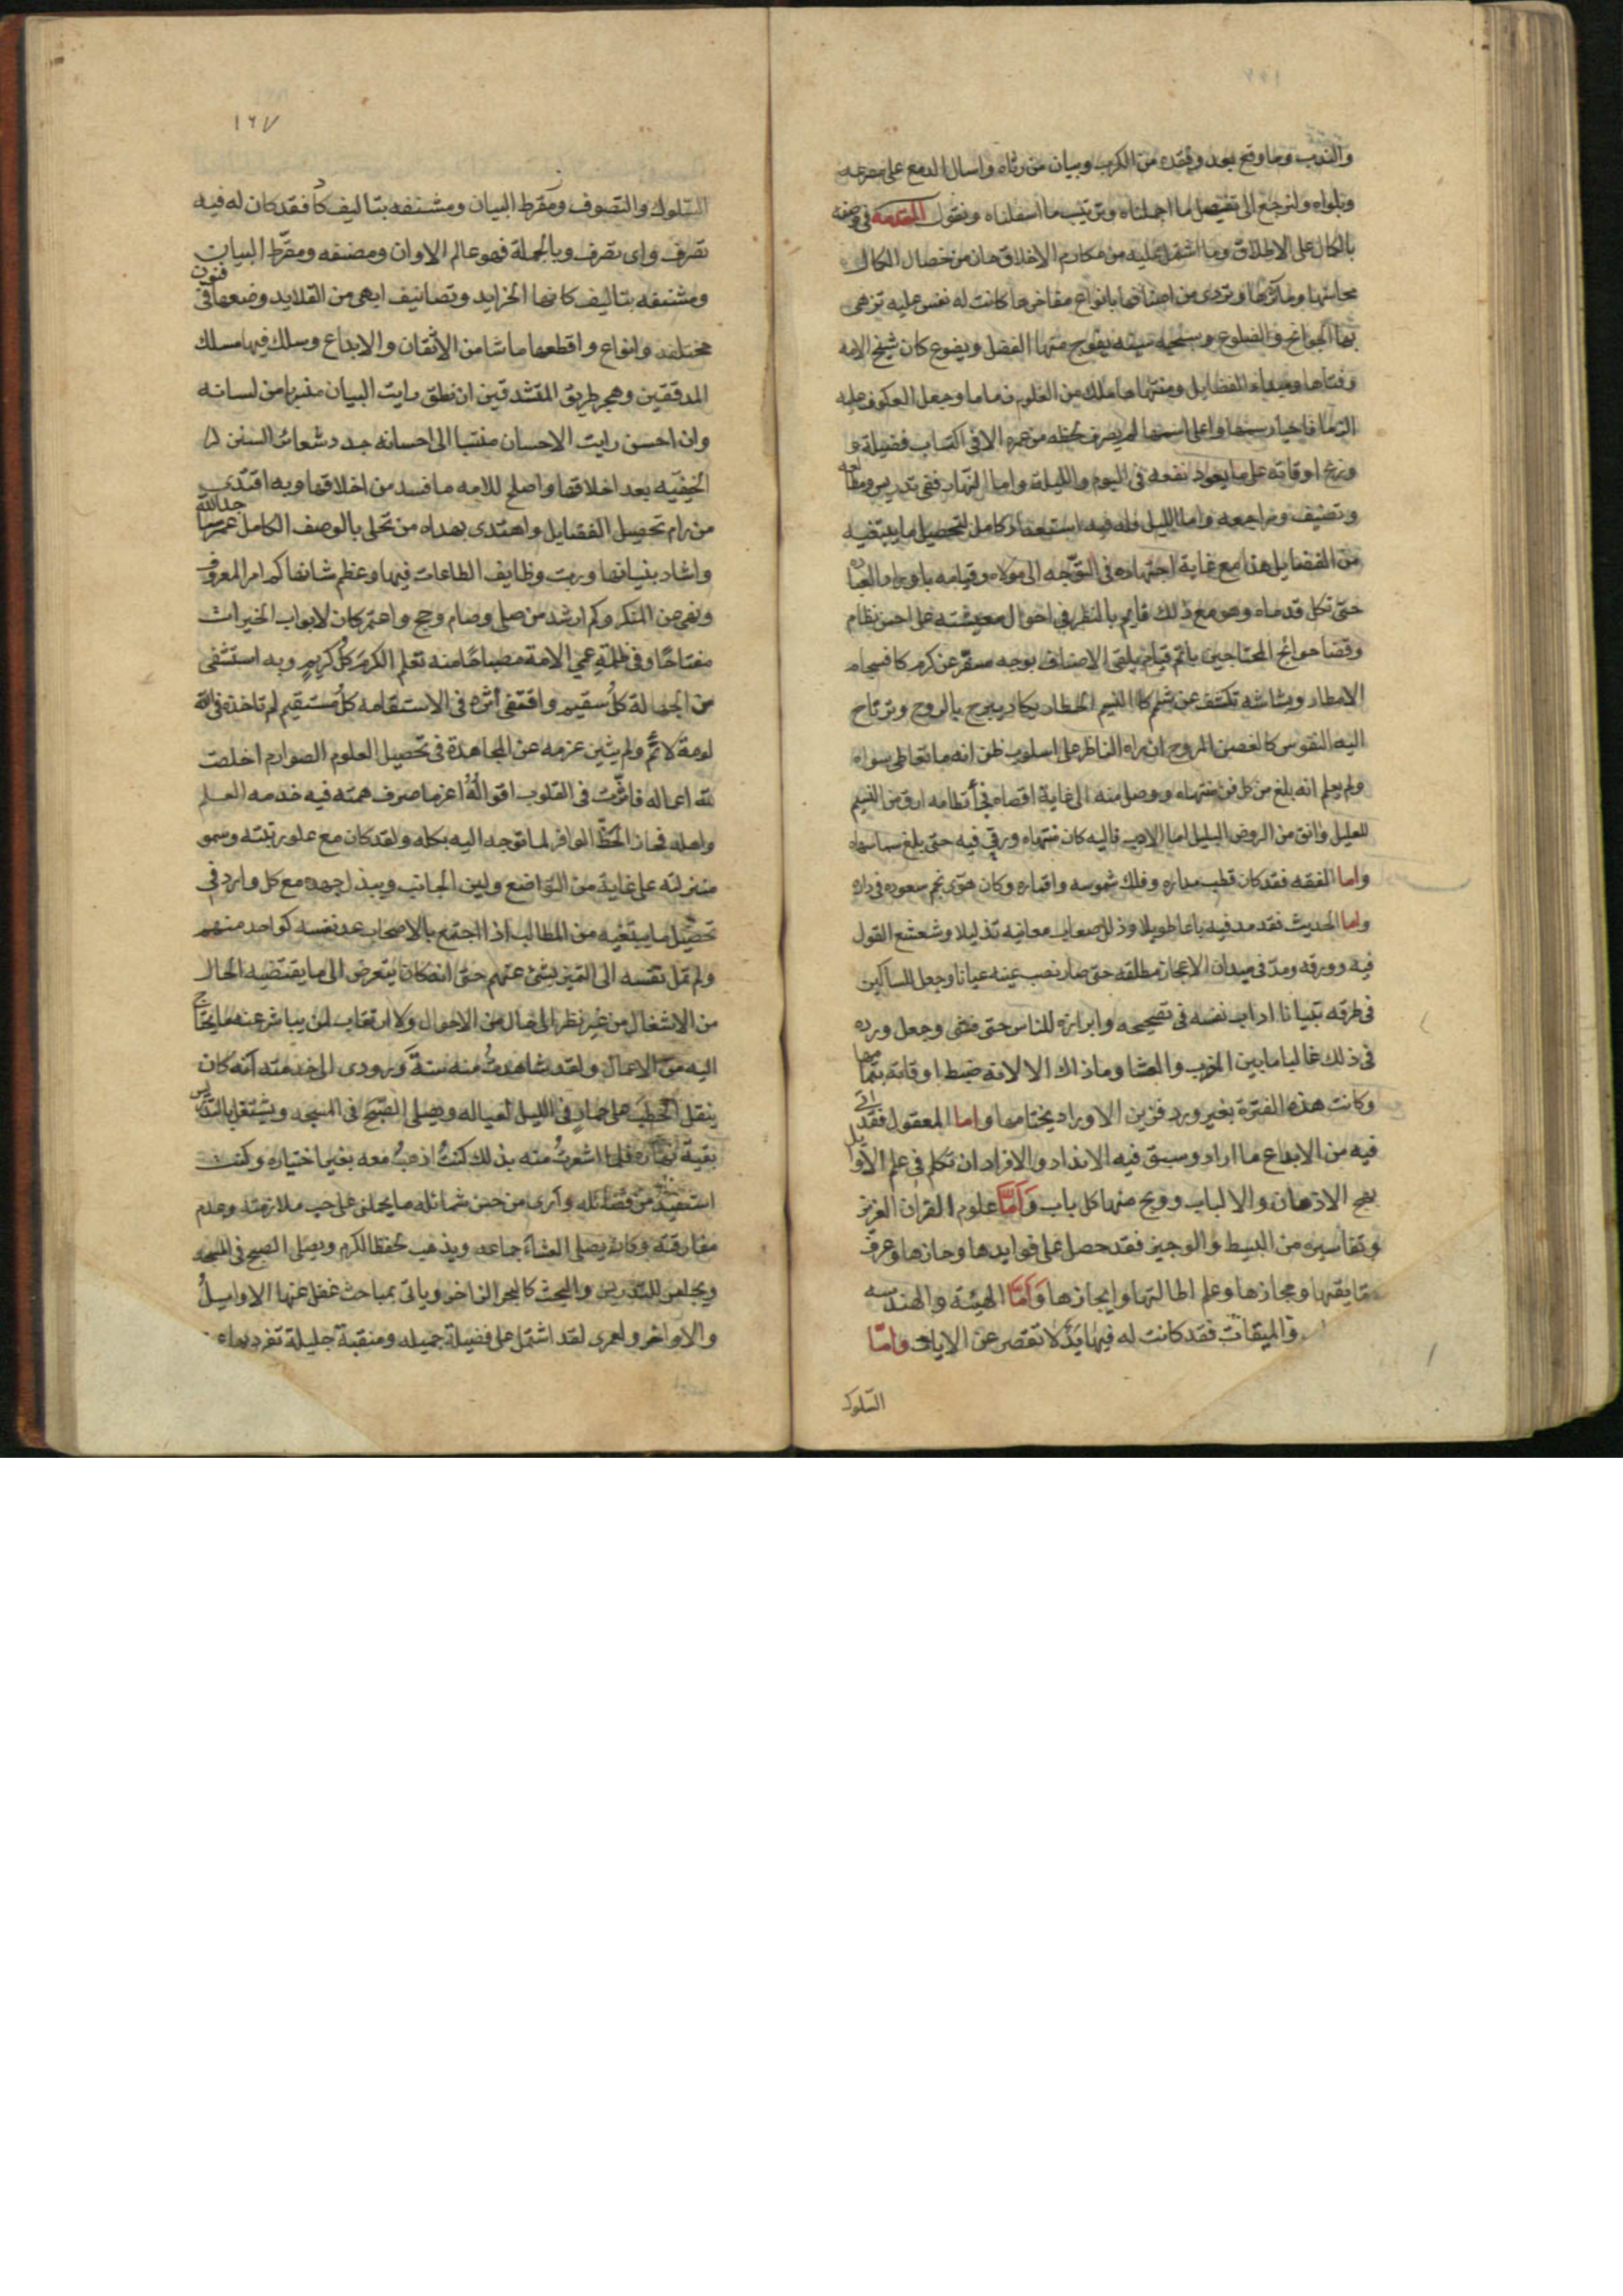 والندب وما وقع بعد وفقده من الكرب وبيان من رثاه واسال الدمع على مصرعه
وبلواه ولنرجع الى تفصيل ما اجملناه وترتيب ما اسفلناه ونقول المقدمه في وصفه
بالكمال على الاطلاق وما اشتمل عليه من مكارم الاخلاق حان من خصال الكمال
محاسنها ومآثرها وتردى من اصنافها بانواع مفاخرها كانت له نفس عليه تزهى
بها الجوانح والضلوع وسجيه سنيه يفوح منها الفضل ويضوع كان شيخ الامه
وفتاها ومبداء الفضايل ومنتهاها ملك من العلوم زماما وجعل العكوف عليه
الزما فاحيا رسمها واعلى اسمها لم يصرف لحظه من عمره الا في اكتساب فضيلة و
وزع اوقاته على ما يعود نفعه في اليوم والليلة واما النهار ففي تدريس ومطالعه
وتصنيف ومراجعه واما الليل فله فيه استعداد كامل لتحصيل ما يبتغيه
من الفضايل هذا مع غاية اجتهاده في التوجه الى مولاه وقيامه باوراد العباده
حتى تكل قدماه وهو مع ذلك قايم بالنظر في احوال معيشته على احسن نظام
وقضا حوائج المحتاجين باتم قيام يلقى الاضياف بوجه مسفر عن كرم كافسحام
الامطار وبشاشه تكشف عن شيم كالنسيم الخطار يكاد يمزج بالروح وترتاح
اليه النفوس كالغصن المروح ان راه الناظر على اسلوب ظن انه ما تعاطى سواه
ولم يعلم انه بلغ من كل فن منتهاه ووصل منه الى غاية اقصاه في أنظامه ارق من النسيم
للعليل وانق من الروض البليل اما الادب فاليه كان منتهاه ورقي فيه حتى بلغ سما سماه
واما الفقه فقد كان قطب مداره وفلك شموسه واقماره وكان هوى نجم سعوده في داره
واما الحديث فقد مد فيه باعا طويلا وذلل صعاب معانيه تذليلا وشعشع القول
فيه وورقه ومد في ميدان الاعجاز مطلقه حتى صار نصب عينه عيانا وجعل للسالكين
في طرقه تبيانا اداب نفسه في تصحيحه وابرازه للناس حتى فشى وجعل ورده
في ذلك غالبا ما بين المغرب والعشا وما ذاك الا لانه ضبط اوقاته بتمامها
وكانت هذه الفترة بغير ورد فزين الاوراد بختامها واما المعقول فقد اتى
فيه من الابداع ما اراد وسبق فيه الانداد والافراد ان تكلم في علم الاوايل
بهج الاذهان والالباب وولج منها كل باب وأما علوم القران العزيز
وتفاسيره من البسيط والوجيز فقد حصل على فوايدها وحازها وعرف
حقايقها ومجازها وعلم اطالتها وايجازها وأما الهيئة والهندسه
والميقات فقد كانت له فيها يد لا تقصر عن الايات واما
السلوك
١٦٧
السلوك والتصوف ومقرط البيان ومشنفه بتاليف كأ فقد كان له فيه
تصرف واى تصرف وبالجملة فهو عالم الاوان ومصنفه ومقرط البيان
ومشنفه بتاليف كانها الخرايد وتصانيف ابهى من القلايد وضعها في فنون
مختلفه وانواع واقطعها ما شا من الاتقان والابداع وسلك فيها مسلك
المدققين وهجر طريق المتشدقين ان نطق رايت البيان منبريا من لسانه
وان احسن رايت الاحسان منتسبا الى احسانه جدد شعائر السنن
الخفيه بعد اخلاقها واصلح للامه ما فسد من اخلاقها وبه اقتدى
من رام تحصيل الفضايل واهتدى بهداه من تحلى بالوصف الكامل عمر مساجد الله
واشاد بنيانها ورتب وظايف الطاعات فيها وعظم شانها كم امر المعروف
ونهى عن المنكر وكم ارشد من صلى وصام وحج واعتمر كان لابواب الخيرات
مفتاحًا وفي ظلمة عمي الامة مصباحًا منه تعلم الكرم كل كريم وبه استشفى
من الجهالة كل سقيم واقتفى أثره في الاستقامه كل مستقيم لم تاخذه في الله
لومة لائم ولم يثن عزمه عن المجاهدة في تحصيل العلوم الصوارم اخلصت
لله اعماله فاثرت في القلوب اقواله أعز ما صرف همته فيه خدمه العلم
واهله فحاز الحظ الوافر لما توجه اليه بكله ولقد كان مع علو رتبته وسمو
منزلته على غاية من التواضع ولين الجانب ويبذل جهده مع كل وارد في
تحصيل ما يبتغيه من المطالب اذا اجتمع بالاصحاب عد نفسه كواحد منهم
ولم تمل نفسه الى التميز بشئ عنهم حتى انه كان يتعرض الى ما يقتضيه الحال
من الاشغال من غير نظر الى حال من الاحوال ولا ارتقاب لمن يباشر عنه ما يحتاج
اليه من الاعمال ولقد شاهدتُ منه سنة ورودى الى خدمته أنه كان
ينقل الحطب على حمار في الليل لعياله ويصلى الصبح في المسجد ويشتغل بالتدريس
بقية نهاره فلما اشعرتُ منه بذلك كنتُ اذهبُ معه بغير اختياره وكنت
استفيد من فضائله وأرى من حسن شمائله ما يحملنى على حب ملازمته وعدم
مفارقته وكان يصلى العشاء جماعه ويذهب لحفظ الكرم ويصلى الصبح في المسجد
ويجلس للتدريس والبحث كالبحر الزاخر وياتى بمباحث غفل عنها الاوايلُ
والاواخر ولعمرى لقد اشتمل على فضيلة جميله ومنقبة جليلة تفرد بها